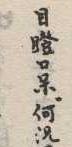 目瞪口呆何況